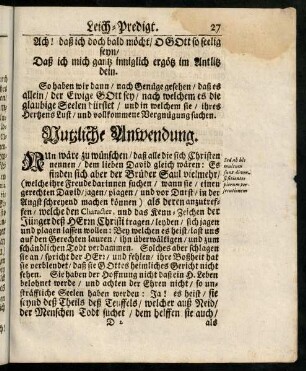 Leich-Predigt. 27
Ach! daß ich doch bald möcht/ O GOtt so seelig
seyn/
Daß ich mich gantz inniglich ergötz im Antlitz
dein.
So haben wir dann / nach Genüge gesehen/ daß es
allein/ der Ewige GOtt sey/ nach welchem es die
glaubige Seelen dürstet/ und in welchem sie/ ihres
Hertzens Lust/ und vollkommene Vergnügung suchen.
Nutzliche Anwendung.
NUn wäre zu wünschen/ daß alle die sich Christen
nennen/ dem lieben David gleich wären: Es
finden sich aber der Brüder Saul vielmehr/
(welche ihre Freude darinnen suchen/ wann sie/ einen
gerechten David/ jagen/ plagen/ und vor Durst/ in der
Angst schreyend machen können) als deren anzutref-
fen/ welche den Character, und das Kenn-Zeichen der
Jünger deß HErrn Christi tragen/ leyden/ sich jagen
und plagen lassen wollen: Bey welchen es heist/ last uns
auf den Gerechten lauren/ ihn überwältigen/ und zum
schändlichen Tod verdammen. Solches aber schlagen
sie an/ spricht der HErr/ und fehlen/ ihre Boßheit hat
sie verblendet/ daß sie GOttes heimliches Gericht nicht
sehen. Sie haben der Hoffnung nicht daß ein H. Leben
belohnet werde/ und achten der Ehren nicht/ so un-
sträffliche Seelen haben werden: Ja! es heist/ sie
seynd deß Theils deß Teuffels/ welcher auß Neid/
der Menschen Tod suchet/ dem helffen sie auch/
D 2 als
Sed ab hâc
multum